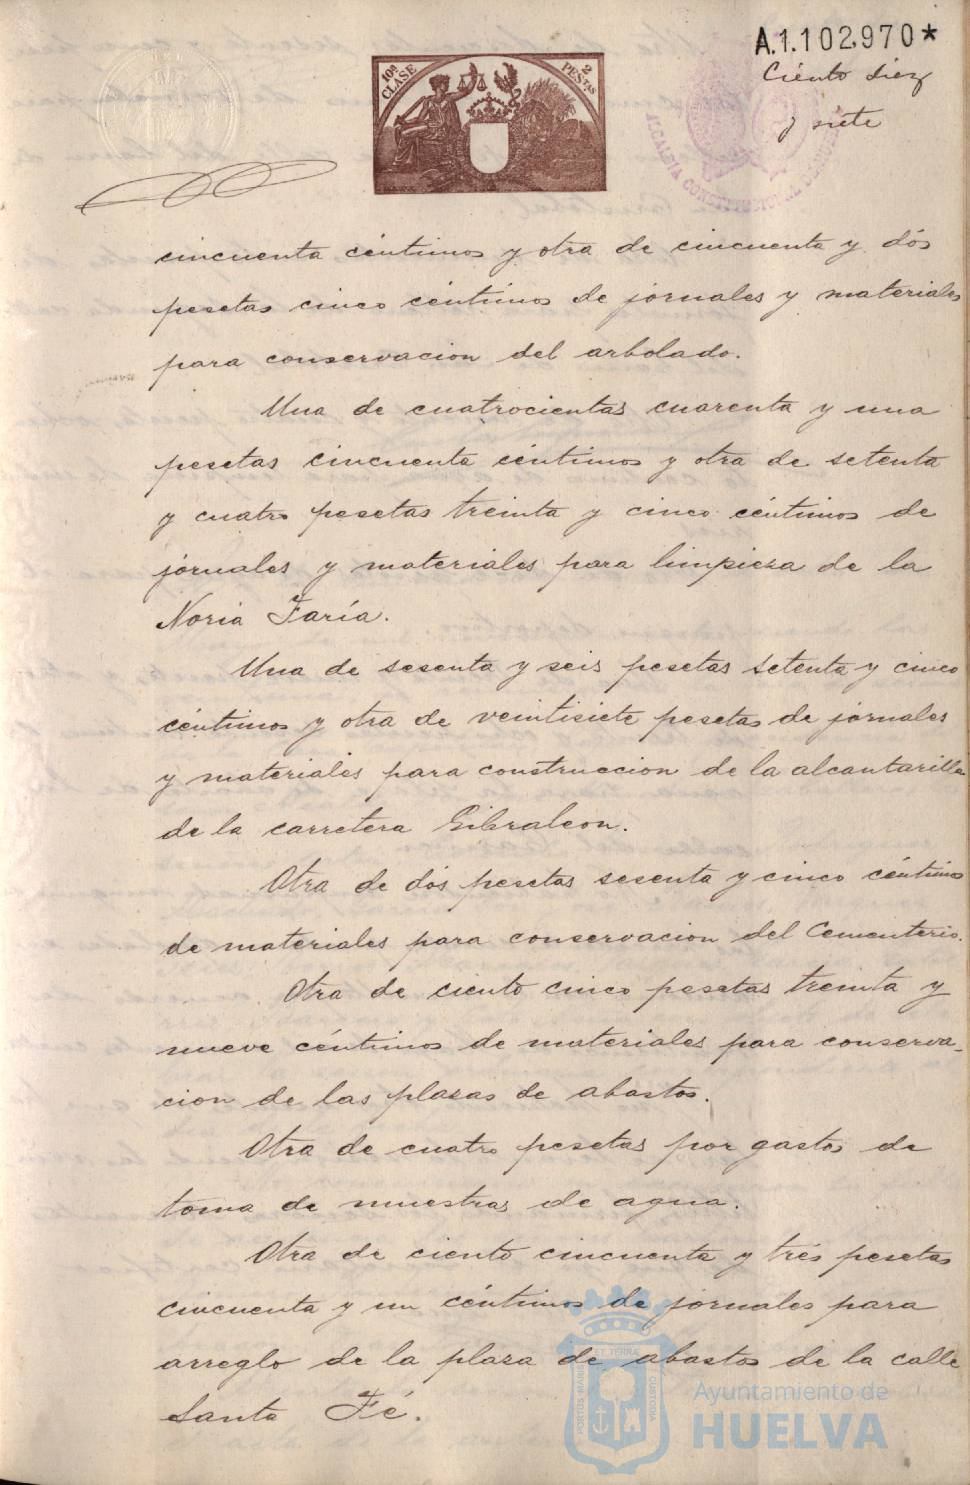 A.1.102,970*
Ciento diez
y siete
10ª CLASE
2 PESETAS
ALCALDIA CONSTITUCIONAL
cincuenta céntimos y otra de cincuenta y dós
pesetas cinco céntimos de jornales y materiales
para conservacion del arbolado.
Una de cuatrocientas cuarenta y una
pesetas cincuenta céntimos y otra de setenta
y cuatro pesetas treinta y cinco céntimos de
jornales y materiales para limpieza de la
Noria Faría.
Una de sesenta y seis pesetas setenta y cinco
céntimos y otra de veintisiete pesetas de jornales
y materiales para construccion de la alcantarilla
de la carretera Gibraleon.
Otra de dós pesetas sesenta y cinco céntimos
de materiales para conservacion del Cementerio.
Otra de ciento cinco pesetas treinta y
nueve céntimos de materiales para conserva-
cion de las plazas de abastos.
Otra de cuatro pesetas por gastos de
toma de muestras de agua.
Otra de ciento cincuenta y trés pesetas
cincuenta y un céntimos de jornales para
arreglo de la plaza de abastos de la calle
Santa Fé.
PORTUS MARIS ET TERRÆ CUSTODIA
Ayuntamiento de
HUELVA